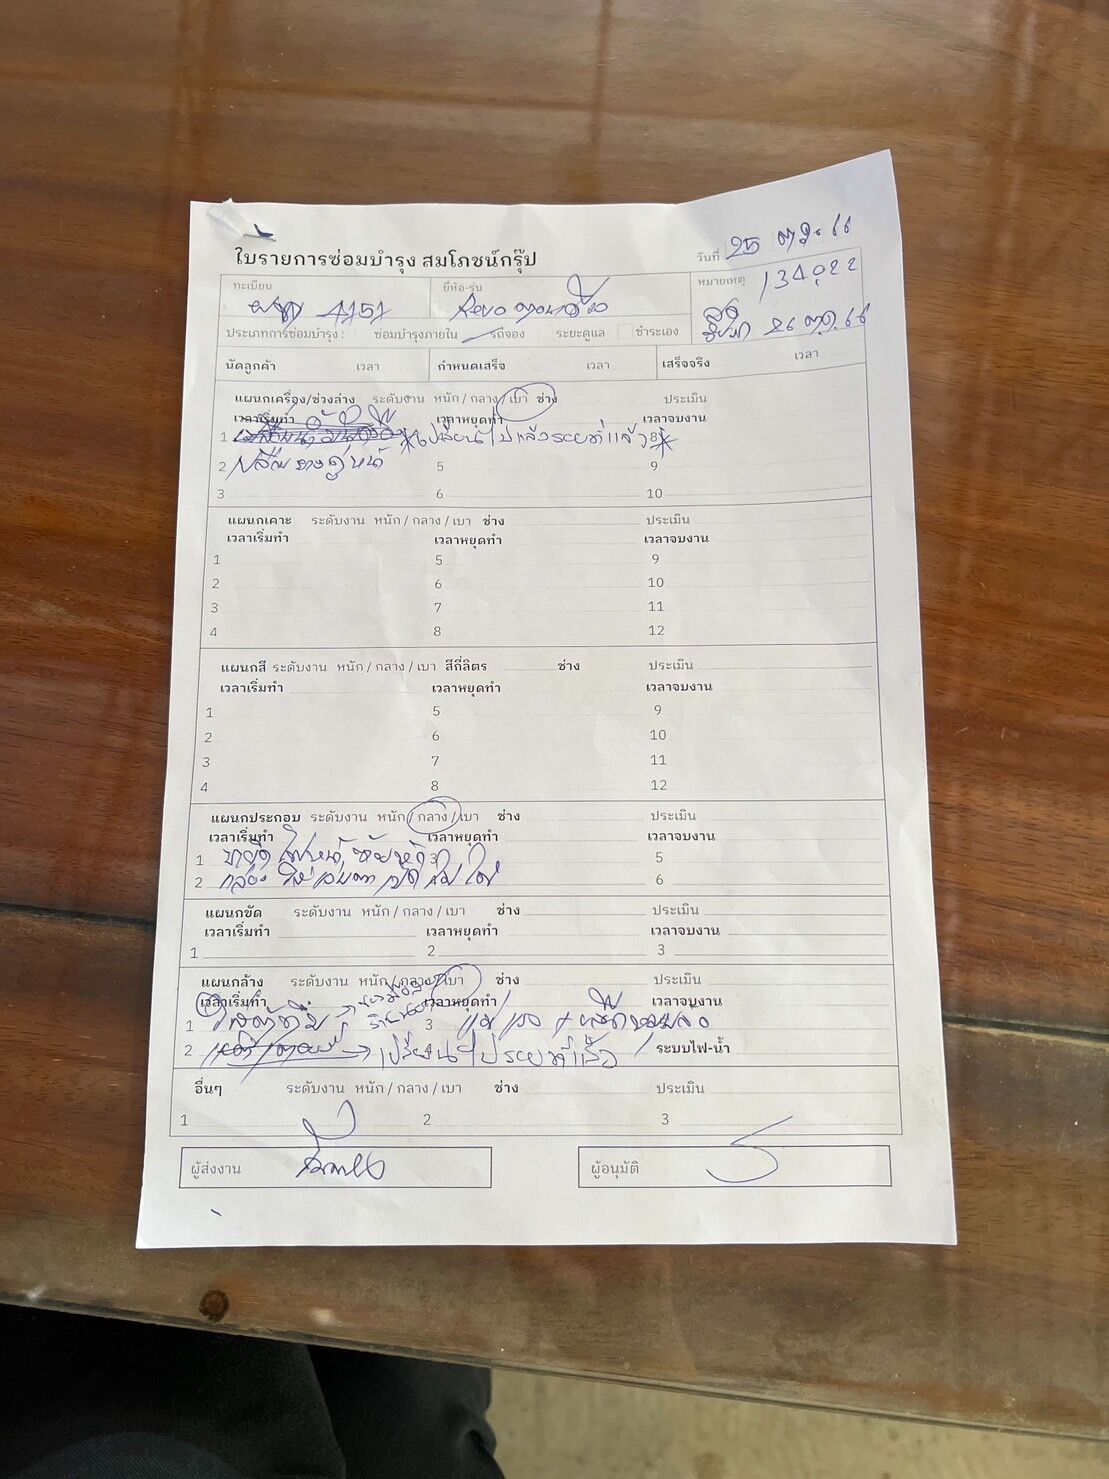 วันที่ 25 ตค. 66
ใบรายการซ่อมบำรุง สมโภชน์กรุ๊ป
ทะเบียน ยี่ห้อ-รุ่น หมายเหตุ 134022
4757 Revo ตอนเดียว
26 ต.ค. 66
ประเภทการซ่อมบำรุง : ซ่อมบำรุงภายใน รถจอง ระยะดูแล ชำระเอง
นัดลูกค้า เวลา กำหนดเสร็จ เวลา เสร็จจริง เวลา
แผนกเครื่อง/ช่วงล่าง ระดับงาน หนัก / กลาง / เบา ช่าง ประเมิน
เวลาเริ่มทำ เวลาหยุดทำ เวลาจบงาน
1 เปลี่ยนไปแล้วระยองที่แล้ว 8
2 คู่หน้า 5 9
3 6 10
แผนกเคาะ ระดับงาน หนัก / กลาง / เบา ช่าง ประเมิน
เวลาเริ่มทำ เวลาหยุดทำ เวลาจบงาน
1 5 9
2 6 10
3 7 11
4 8 12
แผนกสี ระดับงาน หนัก / กลาง / เบา สีกี่ลิตร ช่าง ประเมิน
เวลาเริ่มทำ เวลาหยุดทำ เวลาจบงาน
1 5 9
2 6 10
3 7 11
4 8 12
แผนกประกอบ ระดับงาน หนัก / กลาง / เบา ช่าง ประเมิน
เวลาเริ่มทำ เวลาหยุดทำ เวลาจบงาน
1 ขายึดไฟหน้า 3 5
2 กล่อง 6
แผนกขัด ระดับงาน หนัก / กลาง / เบา ช่าง ประเมิน
เวลาเริ่มทำ เวลาหยุดทำ เวลาจบงาน
1 2 3
แผนกล้าง ระดับงาน หนัก / กลาง / เบา ช่าง ประเมิน
เวลาเริ่มทำ เวลาหยุดทำ เวลาจบงาน
1 3
2 เปลี่ยนไป ที่แล้ว ระบบไฟ-น้ำ
อื่นๆ ระดับงาน หนัก / กลาง / เบา ช่าง ประเมิน
1 2 3
ผู้ส่งงาน ผู้อนุมัติ